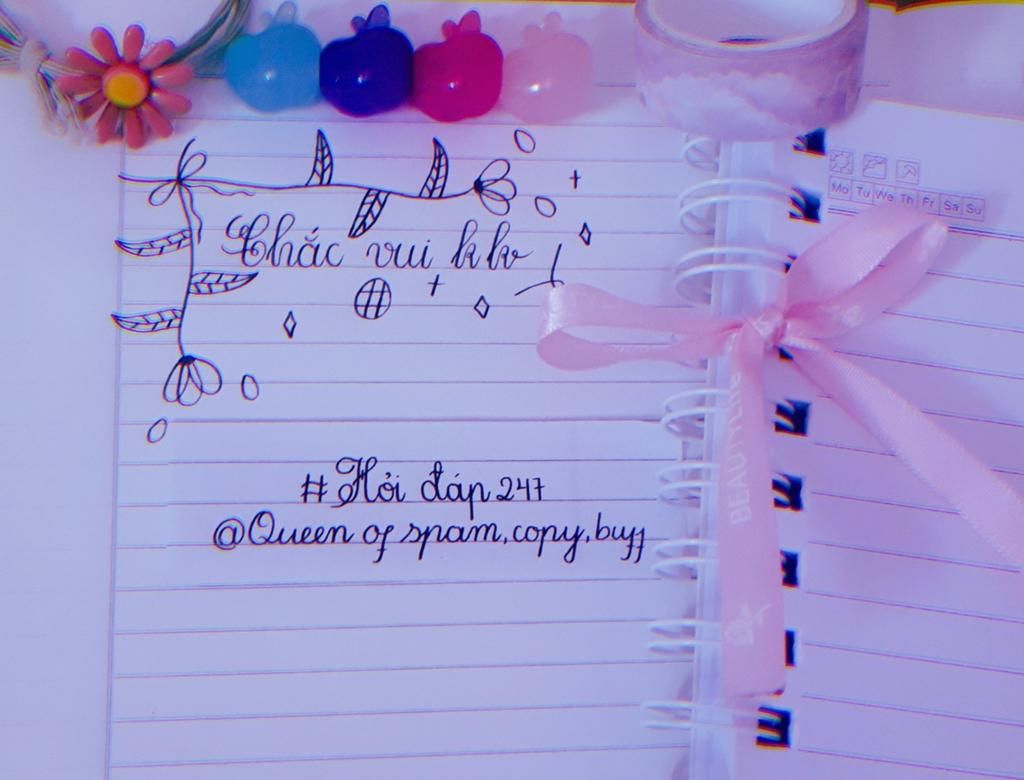 Mo Tu We Th Fr Sa Su
Chắc vui kk
#Hỏi đáp 247
@Queen of spam, copy, buff